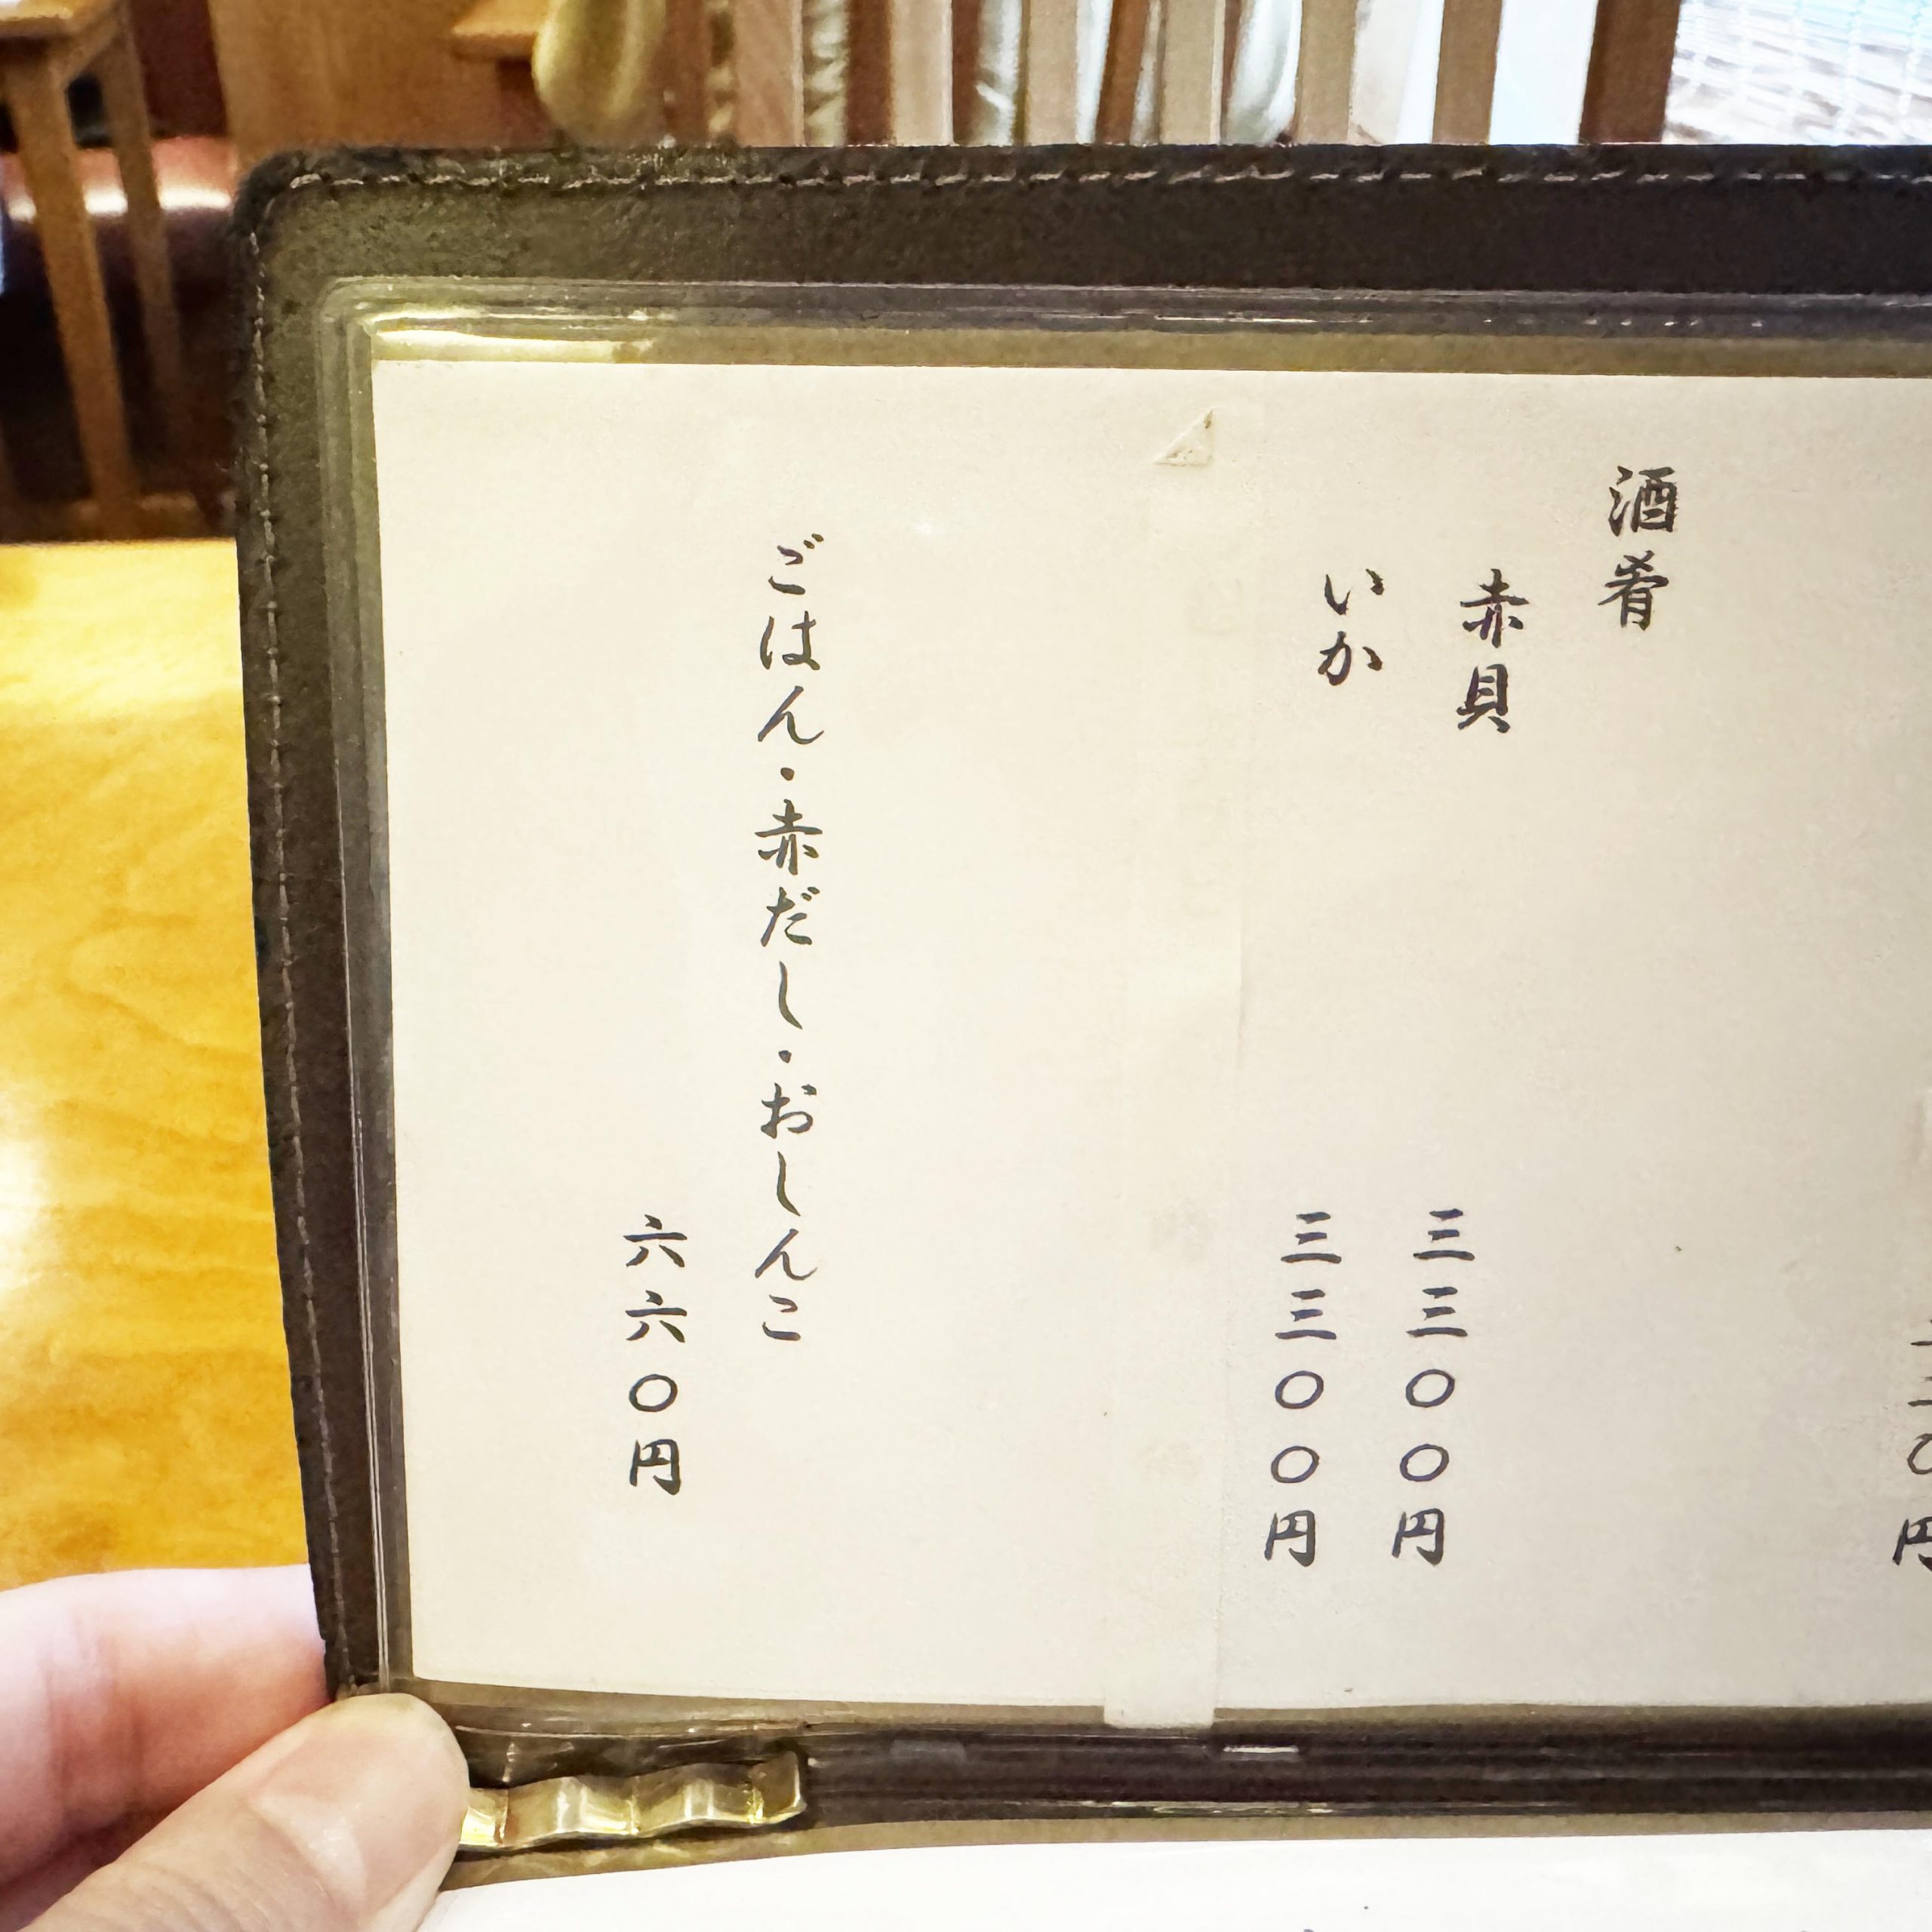 酒肴
赤貝
三三〇〇円
いか
三三〇〇円
ごはん・赤だし・おしんこ
六六〇円